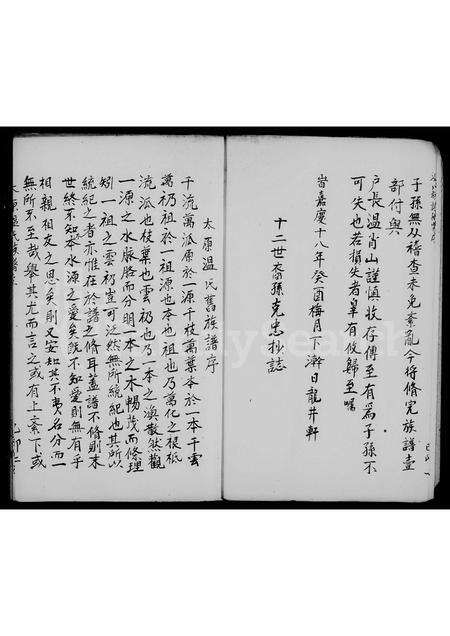 子孫無从稽查未免紊亂今将脩完族譜壹
部付與
户長温肖山謹慎收存傳至有爲子孫不
可失也若損失者辜有攸歸至囑
旹嘉慶十八年癸酉梅月下澣日龍井軒
十二世裔孫克忠抄誌
太原温氏舊族譜序
千流萬派原於一源千枝萬葉本於一本千雲
萬礽祖於一祖源也本也祖也乃萬化之根柢
流派也枝葉也雲礽也乃一本之渙散然觀
一源之水脉胳而分明一本之木暢茂而條理
矧一祖之雲礽豈可泛然無所統紀也其所以
統紀之者亦惟在於譜之脩耳蓋譜不脩則末
世終不知本水源之愛矣既不知愛則無有乎
相親相友之恩矣則又安知其不夷名分而一
無所不至哉舉其尤而言之或有上䒱下或